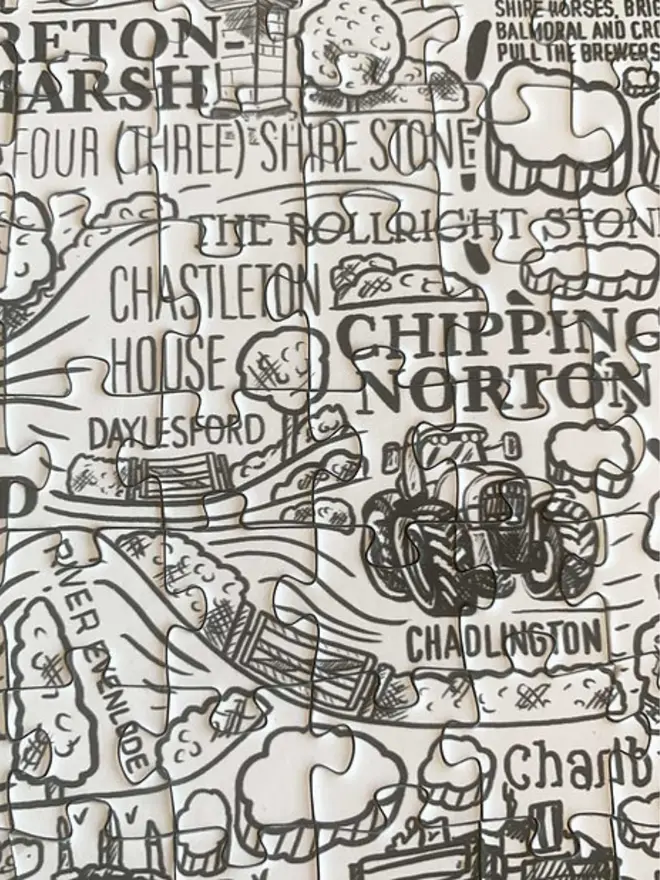 SHIRE HORSES, BRIG
BALMORAL AND CRO
PULL THE BREWERS
RETON-
MARSH
FOUR (THREE) SHIRE STONE
THE ROLLRIGHT STON
CHASTLETON
HOUSE
CHIPPING
NORTON
DAYLESFORD
D
RIVER EVENLODE
CHADLINGTON
Charlb